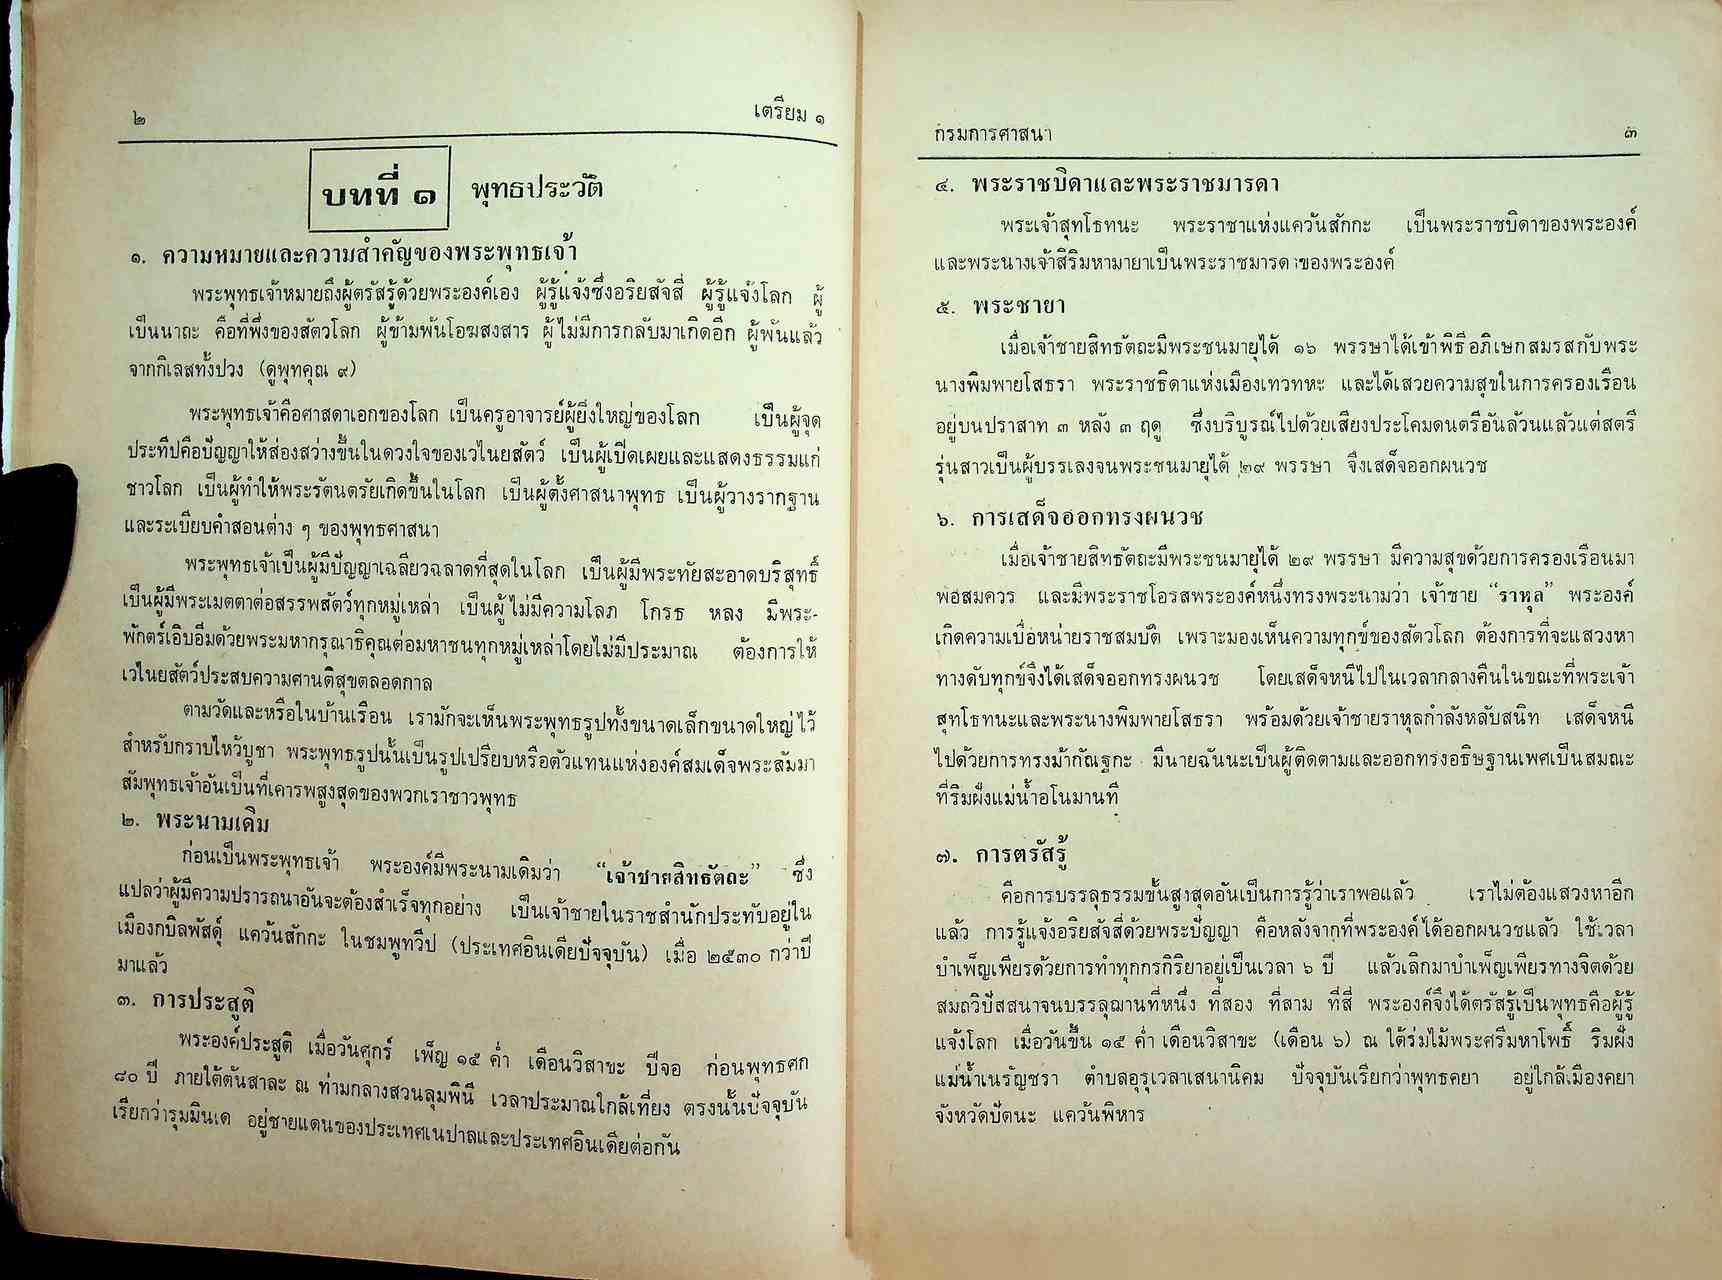 ๒ เตรียม ๑
บทที่ ๑ พุทธประวัติ
๑. ความหมายและความสำคัญของพระพุทธเจ้า
พระพุทธเจ้าหมายถึงผู้ตรัสรู้ด้วยพระองค์เอง ผู้รู้แจ้งซึ่งอริยสัจสี่ ผู้รู้แจ้งโลก ผู้
เป็นนาถะ คือที่พึ่งของสัตวโลก ผู้ข้ามพ้นโอฆสงสาร ผู้ไม่มีการกลับมาเกิดอีก ผู้พ้นแล้ว
จากกิเลสทั้งปวง (ดูพุทคุณ ๙)
พระพุทธเจ้าคือศาสดาเอกของโลก เป็นครูอาจารย์ผู้ยิ่งใหญ่ของโลก เป็นผู้จุด
ประทีปคือปัญญาให้ส่องสว่างขึ้นในดวงใจของเวไนยสัตว์ เป็นผู้เปิดเผยและแสดงธรรมแก่
ชาวโลก เป็นผู้ทำให้พระรัตนตรัยเกิดขึ้นในโลก เป็นผู้ตั้งศาสนาพุทธ เป็นผู้วางรากฐาน
และระเบียบคำสอนต่าง ๆ ของพุทธศาสนา
พระพุทธเจ้าเป็นผู้มีปัญญาเฉลียวฉลาดที่สุดในโลก เป็นผู้มีพระทัยสะอาดบริสุทธิ์
เป็นผู้มีพระเมตตาต่อสรรพสัตว์ทุกหมู่เหล่า เป็นผู้ไม่มีความโลภ โกรธ หลง มีพระ-
พักตร์เอิบอิ่มด้วยพระมหากรุณาธิคุณต่อมหาชนทุกหมู่เหล่าโดยไม่มีประมาณ ต้องการให้
เวไนยสัตว์ประสบความศานติสุขตลอดกาล
ตามวัดและหรือในบ้านเรือน เรามักจะเห็นพระพุทธรูปทั้งขนาดเล็กขนาดใหญ่ไว้
สำหรับกราบไหว้บูชา พระพุทธรูปนั้นเป็นรูปเปรียบหรือตัวแทนแห่งองค์สมเด็จพระสัมมา
สัมพุทธเจ้าอันเป็นที่เคารพสูงสุดของพวกเราชาวพุทธ
๒. พระนามเดิม
ก่อนเป็นพระพุทธเจ้า พระองค์มีพระนามเดิมว่า “เจ้าชายสิทธัตถะ” ซึ่ง
แปลว่าผู้มีความปรารถนาอันจะต้องสำเร็จทุกอย่าง เป็นเจ้าชายในราชสำนักประทับอยู่ใน
เมืองกบิลพัสดุ์ แคว้นสักกะ ในชมพูทวีป (ประเทศอินเดียปัจจุบัน) เมื่อ ๒๕๓๐ กว่าปี
มาแล้ว
๓. การประสูติ
พระองค์ประสูติ เมื่อวันศุกร์ เพ็ญ ๑๕ ค่ำ เดือนวิสาขะ ปีจอ ก่อนพุทธศก
๘๐ ปี ภายใต้ต้นสาละ ณ ท่ามกลางสวนลุมพินี เวลาประมาณใกล้เที่ยง ตรงนั้นปัจจุบัน
เรียกว่ารุมมินเด อยู่ชายแดนของประเทศเนปาลและประเทศอินเดียต่อกัน
กรมการศาสนา ๓
๔. พระราชบิดาและพระราชมารดา
พระเจ้าสุทโธทนะ พระราชาแห่งแคว้นสักกะ เป็นพระราชบิดาของพระองค์
และพระนางเจ้าสิริมหามายาเป็นพระราชมารดาของพระองค์
๕. พระชายา
เมื่อเจ้าชายสิทธัตถะมีพระชนมายุได้ ๑๖ พรรษาได้เข้าพิธีอภิเษกสมรสกับพระ
นางพิมพายโสธรา พระราชธิดาแห่งเมืองเทวทหะ และได้เสวยความสุขในการครองเรือน
อยู่บนปราสาท ๓ หลัง ๓ ฤดู ซึ่งบริบูรณ์ไปด้วยเสียงประโคมดนตรีอันล้วนแล้วแต่สตรี
รุ่นสาวเป็นผู้บรรเลงจนพระชนมายุได้ ๒๙ พรรษา จึงเสด็จออกผนวช
๖. การเสด็จออกทรงผนวช
เมื่อเจ้าชายสิทธัตถะมีพระชนมายุได้ ๒๙ พรรษา มีความสุขด้วยการครองเรือนมา
พอสมควร และมีพระราชโอรสพระองค์หนึ่งทรงพระนามว่า เจ้าชาย “ราหุล” พระองค์
เกิดความเบื่อหน่ายราชสมบัติ เพราะมองเห็นความทุกข์ของสัตวโลก ต้องการที่จะแสวงหา
ทางดับทุกข์จึงได้เสด็จออกทรงผนวช โดยเสด็จหนีไปในเวลากลางคืนในขณะที่พระเจ้า
สุทโธทนะและพระนางพิมพายโสธรา พร้อมด้วยเจ้าชายราหุลกำลังหลับสนิท เสด็จหนี
ไปด้วยการทรงม้ากัณฐกะ มีนายฉันนะเป็นผู้ติดตามและออกทรงอธิษฐานเพศเป็นสมณะ
ที่ริมฝั่งแม่น้ำอโนมานที
๗. การตรัสรู้
คือการบรรลุธรรมขั้นสูงสุดอันเป็นการรู้ว่าเราพอแล้ว เราไม่ต้องแสวงหาอีก
แล้ว การรู้แจ้งอริยสัจสี่ด้วยพระปัญญา คือหลังจากที่พระองค์ได้ออกผนวชแล้ว ใช้เวลา
บำเพ็ญเพียรด้วยการทำทุกกรกิริยาอยู่เป็นเวลา ๖ ปี แล้วเลิกมาบำเพ็ญเพียรทางจิตด้วย
สมถวิปัสสนาจนบรรลุฌานที่หนึ่ง ที่สอง ที่สาม ที่สี่ พระองค์จึงได้ตรัสรู้เป็นพุทธคือผู้รู้
แจ้งโลก เมื่อวันขึ้น ๑๕ ค่ำ เดือนวิสาขะ (เดือน ๖) ณ ใต้ร่มไม้พระศรีมหาโพธิ์ ริมฝั่ง
แม่น้ำเนรัญชรา ตำบลอุรุเวลาเสนานิคม ปัจจุบันเรียกว่าพุทธคยา อยู่ใกล้เมืองคยา
จังหวัดปัตนะ แคว้นพิหาร